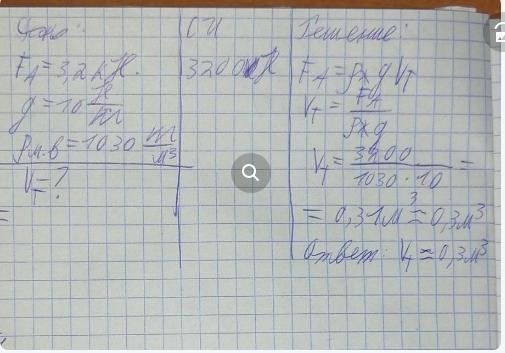 Дано:
F_A = 3,2 кН.
g = 10 Н/кг
ρм.в = 1030 кг/м³
V_T = ?
СИ
3200 Н
Решение:
F_A = ρж g V_T
V_T = F_A / ρж g
V_T = 3200 / 1030 · 10 =
= 0,31 м³ ≈ 0,3 м³
Ответ: V_T ≈ 0,3 м³